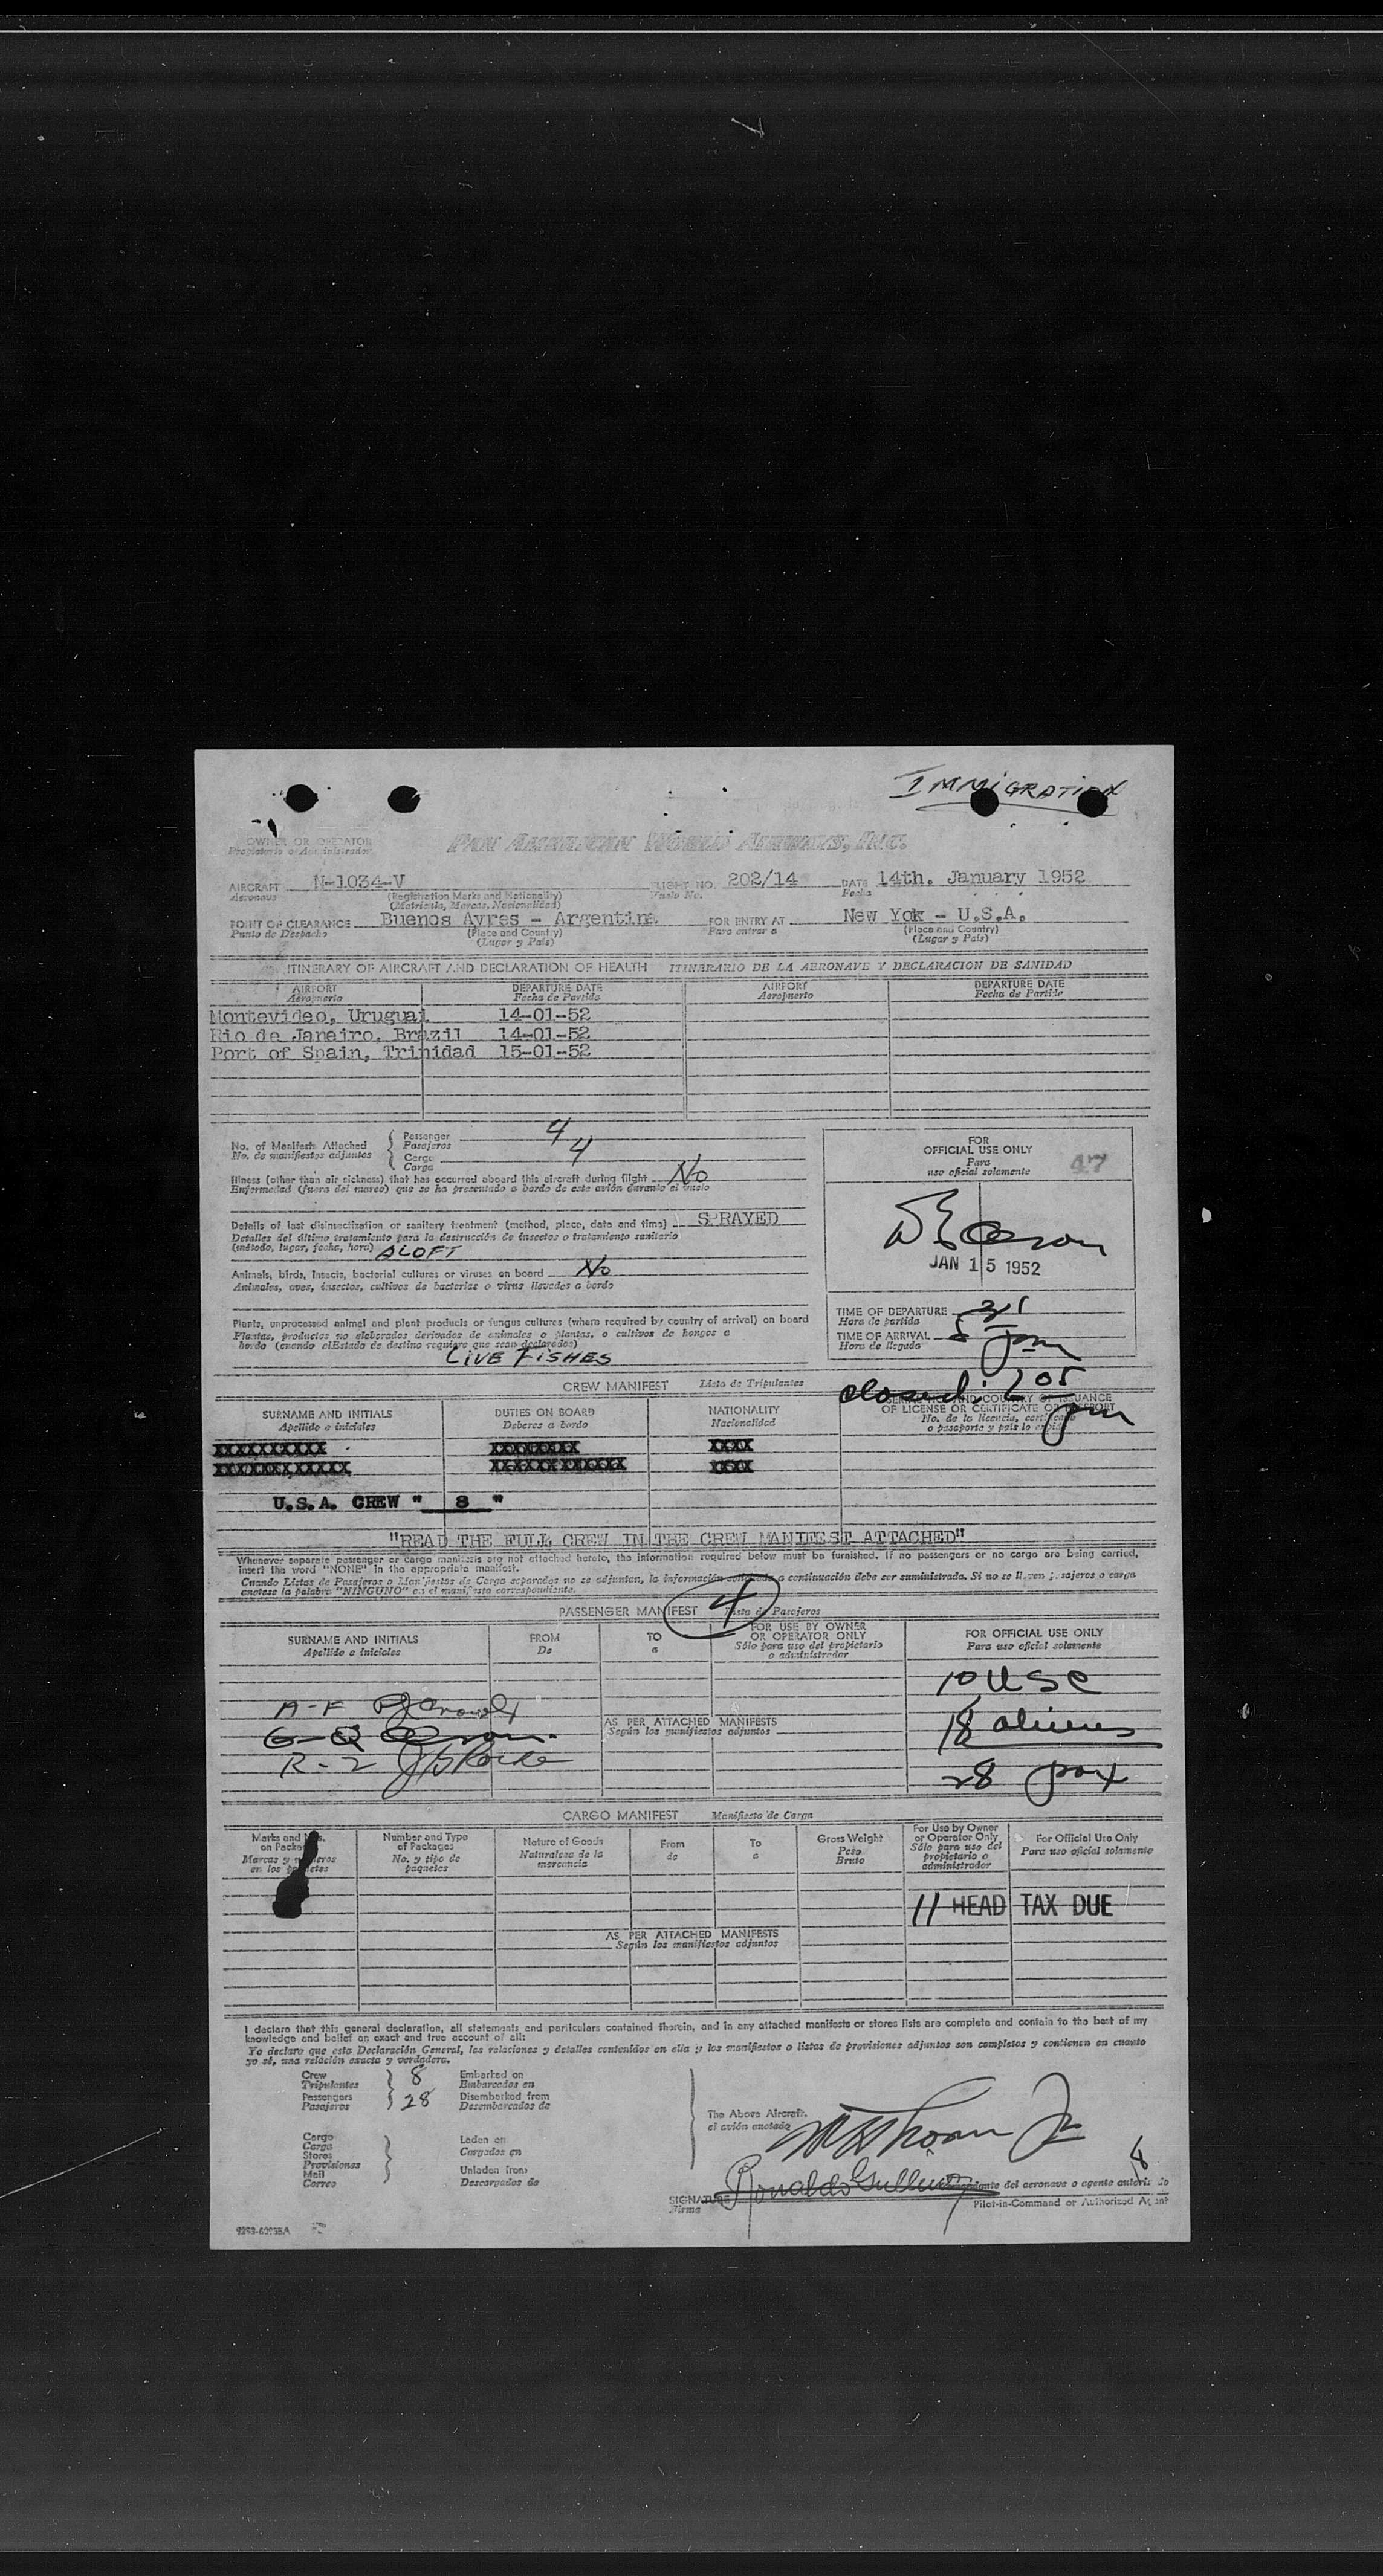 IMMIGRATION
OWNER OR OPERATOR
Propietario o Administrador
PAN AMERICAN WORLD AIRWAYS, INC.
AIRCRAFT N-1034-V FLIGHT NO. 202/14 DATE 14th. January 1952
Aeronave (Registration Marks and Nationality) Vuelo No. Fecha
(Matrícula, Marcas, Nacionalidad)
POINT OF CLEARANCE Buenos Ayres - Argentina FOR ENTRY AT New Yok - U.S.A.
Punto de Despacho (Place and Country) Para entrar a (Place and Country)
(Lugar y País) (Lugar y País)
ITINERARY OF AIRCRAFT AND DECLARATION OF HEALTH ITINERARIO DE LA AERONAVE Y DECLARACION DE SANIDAD
AIRPORT DEPARTURE DATE AIRPORT DEPARTURE DATE
Aeropuerto Fecha de Partida Aeropuerto Fecha de Partida
Montevideo, Uruguai 14-01-52
Rio de Janeiro, Brazil 14-01-52
Port of Spain, Trinidad 15-01-52
No. of Manifests Attached Passenger 4
No. de manifiestos adjuntos Pasajeros
Cargo 4
Carga
Illness (other than air sickness) that has occurred aboard this aircraft during flight No
Enfermedad (fuera del mareo) que se ha presentado a bordo de este avión durante el vuelo
Details of last disinsectization or sanitary treatment (method, place, date and time) SPRAYED
Detalles del último tratamiento para la destrucción de insectos o tratamiento sanitario
(método, lugar, fecha, hora) ALOFT
Animals, birds, insects, bacterial cultures or viruses on board No
Animales, aves, insectos, cultivos de bacterias o virus llevados a bordo
Plants, unprocessed animal and plant products or fungus cultures (where required by country of arrival) on board
Plantas, productos no elaborados derivados de animales o plantas, o cultivos de hongos a
bordo (cuando el Estado de destino requiere que sean declarados)
LIVE FISHES
FOR
OFFICIAL USE ONLY
Para
uso oficial solamente
47
JAN 15 1952
TIME OF DEPARTURE
Hora de partida
TIME OF ARRIVAL
Hora de llegada
pm
closed: 205
pm
CREW MANIFEST Lista de Tripulantes
SURNAME AND INITIALS DUTIES ON BOARD NATIONALITY SERIAL NO. AND COUNTRY OF ISSUANCE
Apellido e iniciales Deberes a bordo Nacionalidad OF LICENSE OR CERTIFICATE OR PASSPORT
No. de la licencia, certificado
o pasaporte y país lo
XXXXXXXXXX XXXXXXXX XXXX
XXXXXXXXXXXX XXXXXXXXXXXX XXXX
U.S.A. CREW " 8 "
"READ THE FULL CREW IN THE CREW MANIFEST ATTACHED"
Whenever separate passenger or cargo manifests are not attached hereto, the information required below must be furnished. If no passengers or no cargo are being carried,
insert the word "NONE" in the appropriate manifest.
Cuando Listas de Pasajeros o Manifiestos de Carga separados no se adjuntan, la información solicitada a continuación debe ser suministrada. Si no se llevan pasajeros o carga
anótese la palabra "NINGUNO" en el manifiesto correspondiente.
PASSENGER MANIFEST 4 Lista de Pasajeros
SURNAME AND INITIALS FROM TO FOR USE BY OWNER FOR OFFICIAL USE ONLY
Apellido e iniciales De a OR OPERATOR ONLY Para uso oficial solamente
Sólo para uso del propietario
o administrador
10 USC
A-F
G-Q
R-Z
AS PER ATTACHED MANIFESTS
Según los manifiestos adjuntos
18 aliens
28 pax
CARGO MANIFEST Manifiesto de Carga
Marks and Nos. Number and Type Nature of Goods From To Gross Weight For Use by Owner For Official Use Only
on Packages of Packages Naturaleza de la de a Peso or Operator Only Para uso oficial solamente
Marcas y números No. y tipo de mercancía Bruto Sólo para uso del
en los paquetes paquetes propietario o
administrador
11 HEAD TAX DUE
AS PER ATTACHED MANIFESTS
Según los manifiestos adjuntos
I declare that this general declaration, all statements and particulars contained therein, and in any attached manifests or stores lists are complete and contain to the best of my
knowledge and belief an exact and true account of all:
Yo declaro que esta Declaración General, las relaciones y detalles contenidos en ella y los manifiestos o listas de provisiones adjuntos son completos y contienen en cuanto
yo sé, una relación exacta y verdadera.
Crew 8 Embarked on
Tripulantes Embarcados en
Passengers 28 Disembarked from
Pasajeros Desembarcados de
Cargo Laden on
Carga Cargados en
Stores
Provisiones
Mail Unladen from
Correo Descargados de
The Above Aircraft.
el avión anotado
SIGNATURE
Firma
Comandante del aeronave o agente autorizado
Pilot-in-Command or Authorized Agent